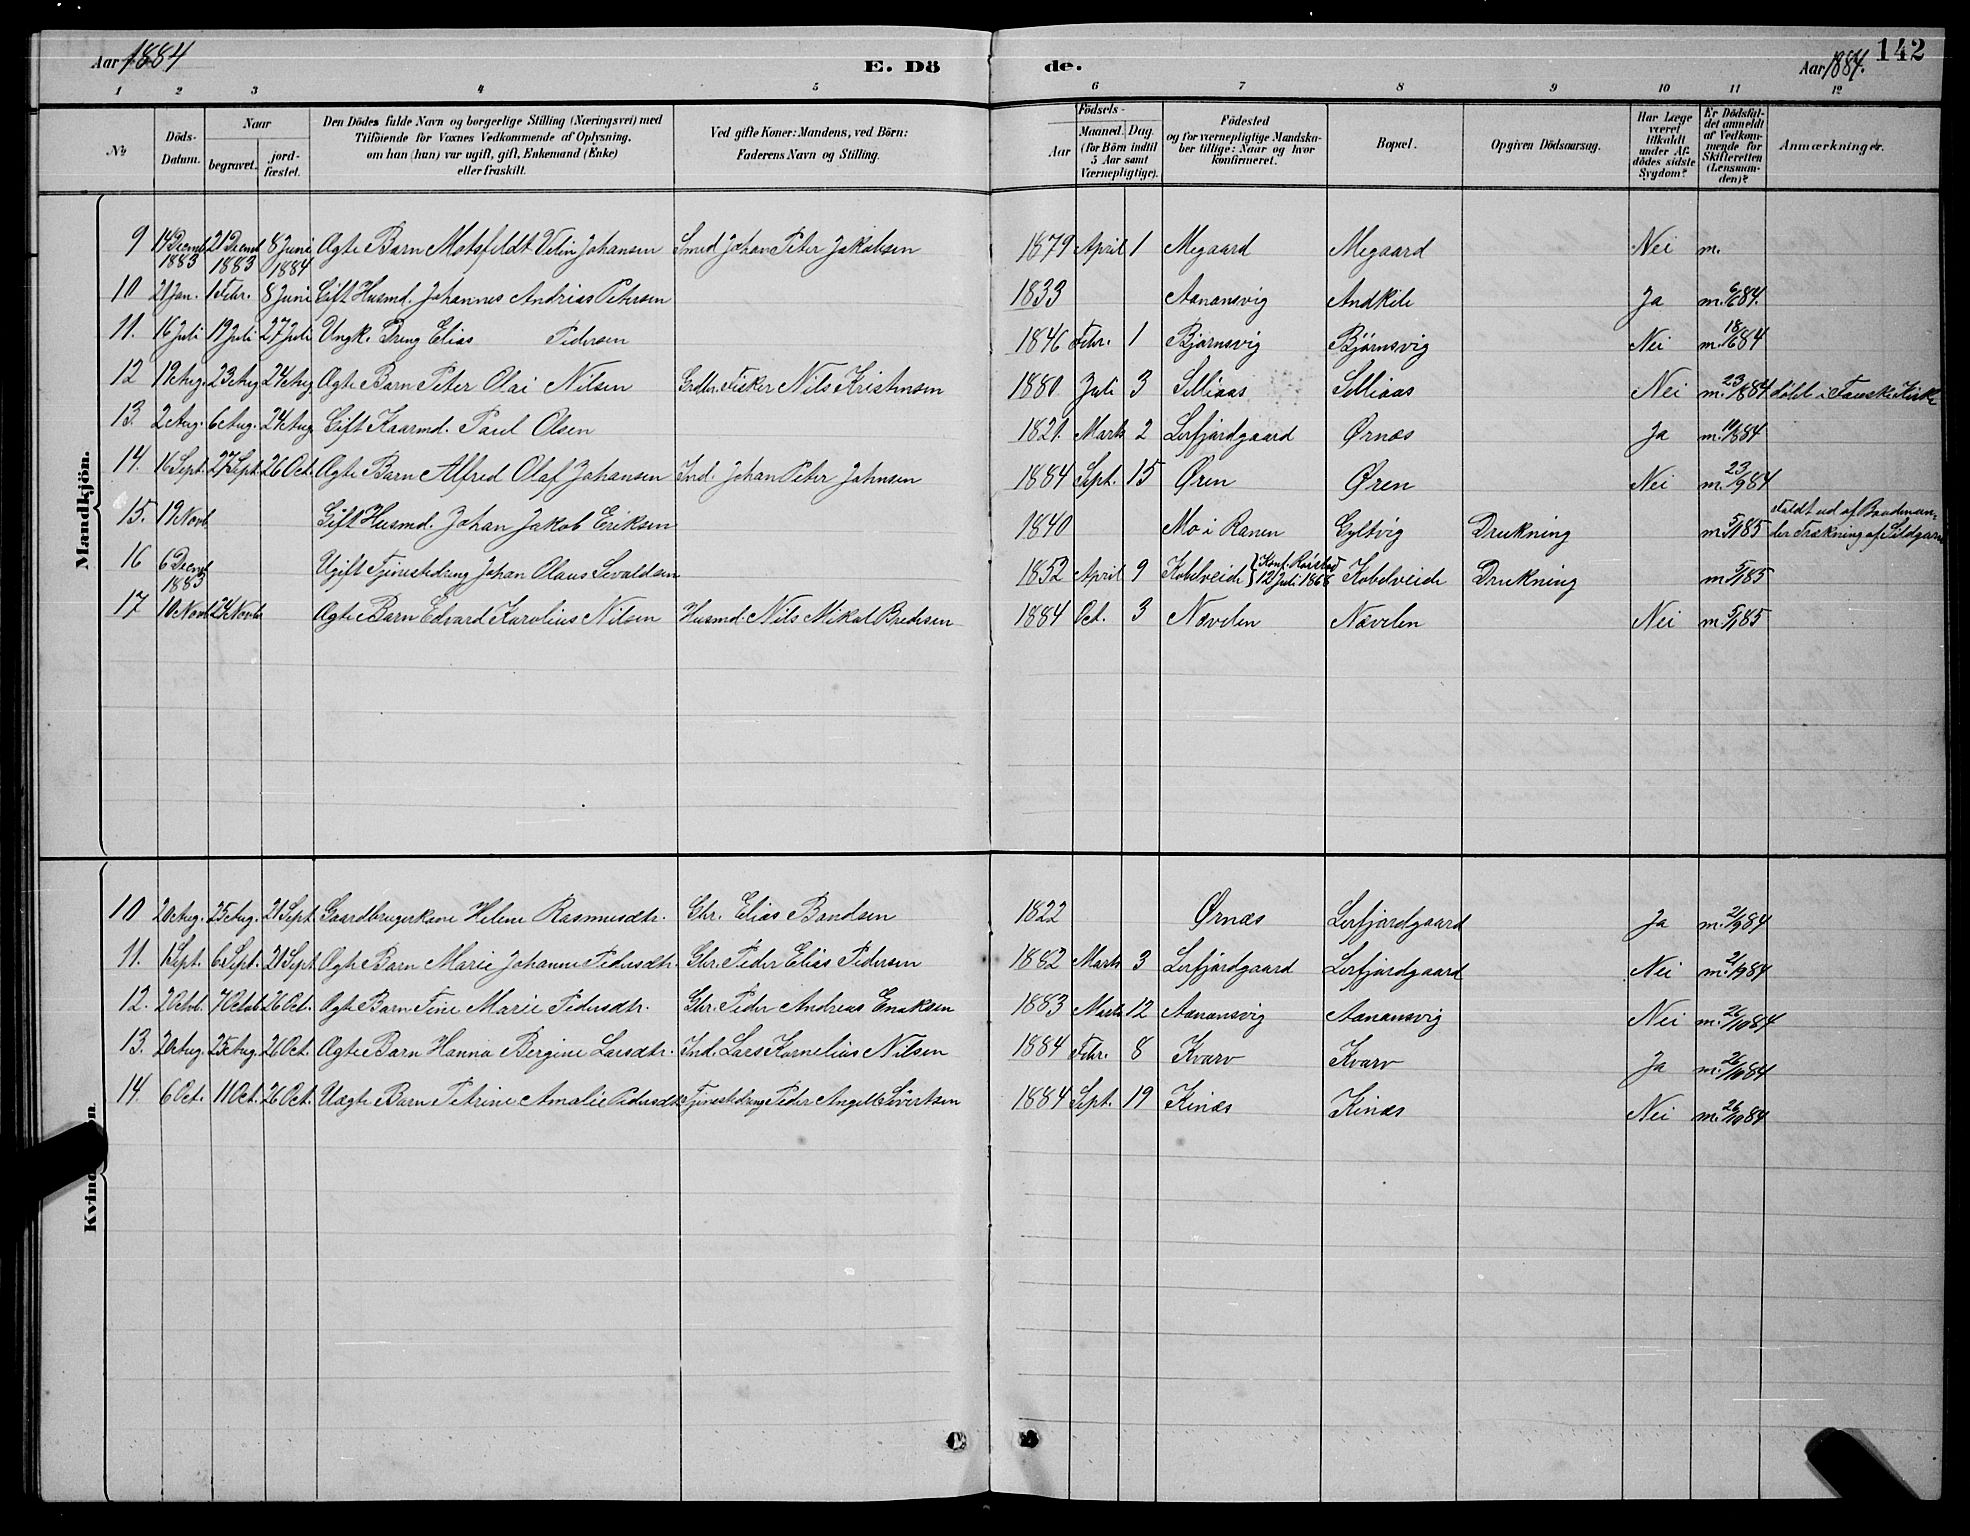 Aar 1884
E. Dö
de.
Aar 1884.
142
1 2 3 4 5 6 7 8 9 10 11 12
No
Döds-Datum.
Naar
begravet.
jord-fæstet.
Den Dödes fulde Navn og borgerlige Stilling (Næringsvei) med
Tilföiende for Voxnes Vedkommende af Oplysning,
om han (hun) var ugift, gift, Enkemand (Enke)
eller fraskilt.
Ved gifte Koner: Mandens, ved Börn:
Faderens Navn og Stilling.
Födsels-
Aar
Maaned.
Dag.
(for Börn indtil
5 Aar samt
Værnepligtige).
Födested
og for værnepligtige Mandska-
ber tillige: Naar og hvor
konfirmeret.
Bopæl.
Opgiven Dödsaarsag.
Har Læge
været
tilkaldt
under Af-
dödes sidste
Sygdom?
Er Dödsfal-
det anmeldt
af Vedkom-
mende for
Skifteretten
(Lensman-
den)?
Anmærkninger.
Mandkjön.
9 14 Decmb 1883 21 Decmb 1883 8 Juni 1884 Ægte Barn Motsfeldt Velin Johansen Smed Johan Peter Jakobsen 1879 April 1 Megaard Megaard Nei m.
10 21 Jan. 1 Febr. 8 Juni Gift Husmd. Johannes Andrias Petersen 1833 Aanansvig Andkile Ja m. 9/6 84.
11. 16 Juli 19 Juli 27 Juli Ungk. Dreng Elias Pedersen 1846 Febr. 1 Bjørnsvig Bjørnsvig Nei m. 84
12 19 Aug. 23 Aug 24 Aug. Ægte Barn Peter Olai Nilsen Grdbr. Fisker Nils Kristensen 1880 Juli 3 Selliaas Selliaas Nei m. 23/ 84 døbt i Fauske Kirke
13. 2 Aug. 6 Aug. 24 Aug Gift Kaarmd. Paul Olsen 1821. Marts 2 Lerfjordgaard Ørnæs Ja m. 84
14. 16 Sept. 27 Sept. 26 Oct. Ægte Barn Alfred Olaf Johansen Ind. Johan Peter Johnsen 1884 Sept. 15 Øren Øren Nei m. 23/9 84
15. 19 Novb Gift Husmd. Johan Jakob Eriksen 1840 Mo i Ranen Gyltvig Drukning m. 5/1 85 Faldt ud af Baaden un-
der Trækning af Sildgarn
16 6 Decmb 1883 Ugift Tjenestedreng Johan Olaus Sevaldsen 1852 April 9 Kobelveide {Konf. Rørstad 12 Juli 1868 Kobelveide Drukning m. 5/1 85
17 16 Novb 24 Novb Ægte Barn Edvard Karolius Nilsen Husmd. Nils Mikal Bredesen 1884 Oct. 3 Nævelen Nævelen Nei m. 5/1 85
Kvind
n.
10 20 Aug. 25 Aug. 21 Sept. Gaardbrugerkone Helene Rasmusdtr. Gbr. Elias Bendsen 1822 Ørnæs Lerfjordgaard Ja m. 2/9 84
11. 1 Sept. 6 Sept. 21 Sept. Ægte Barn Marie Johanne Pedersdtr. Gbr. Peder Elias Pedersen 1882 Marts 3 Lerfjordgaard Lerfjordgaard Nei m. 2/9 84
12. 2 Octb. 7 Octob 26 Oct. Ægte Barn Tine Marie Pedersdtr. Gbr. Peder Andreas Enoksen 1883 Marts 12 Aanansvig Aanansvig Nei m. 26/10 84
13. 20 Aug. 25 Aug. 26 Oct. Ægte Barn Hanna Bergine Larsdtr. Ind. Lars Kornelius Nilsen 1884 Febr. 8 Kvarv Kvarv Ja m. 26/10 84
14. 6 Oct. 11 Oct. 26 Oct. Uægte Barn Petrine Amalie Pedersdtr Tjenestedreng Peder Angell Sivertsen 1884 Sept. 19 Kinæs Kinæs Nei m. 26/10 84